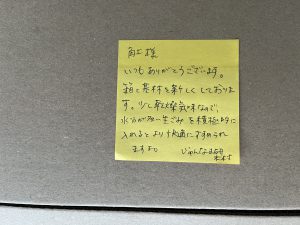 様
いつもありがとうございます。
箱と基材を新しくしておりま
す。少し乾燥気味なので、
水分が多い生ごみを積極的に
入れるとより快適にすすめられ
ますよ。
木村